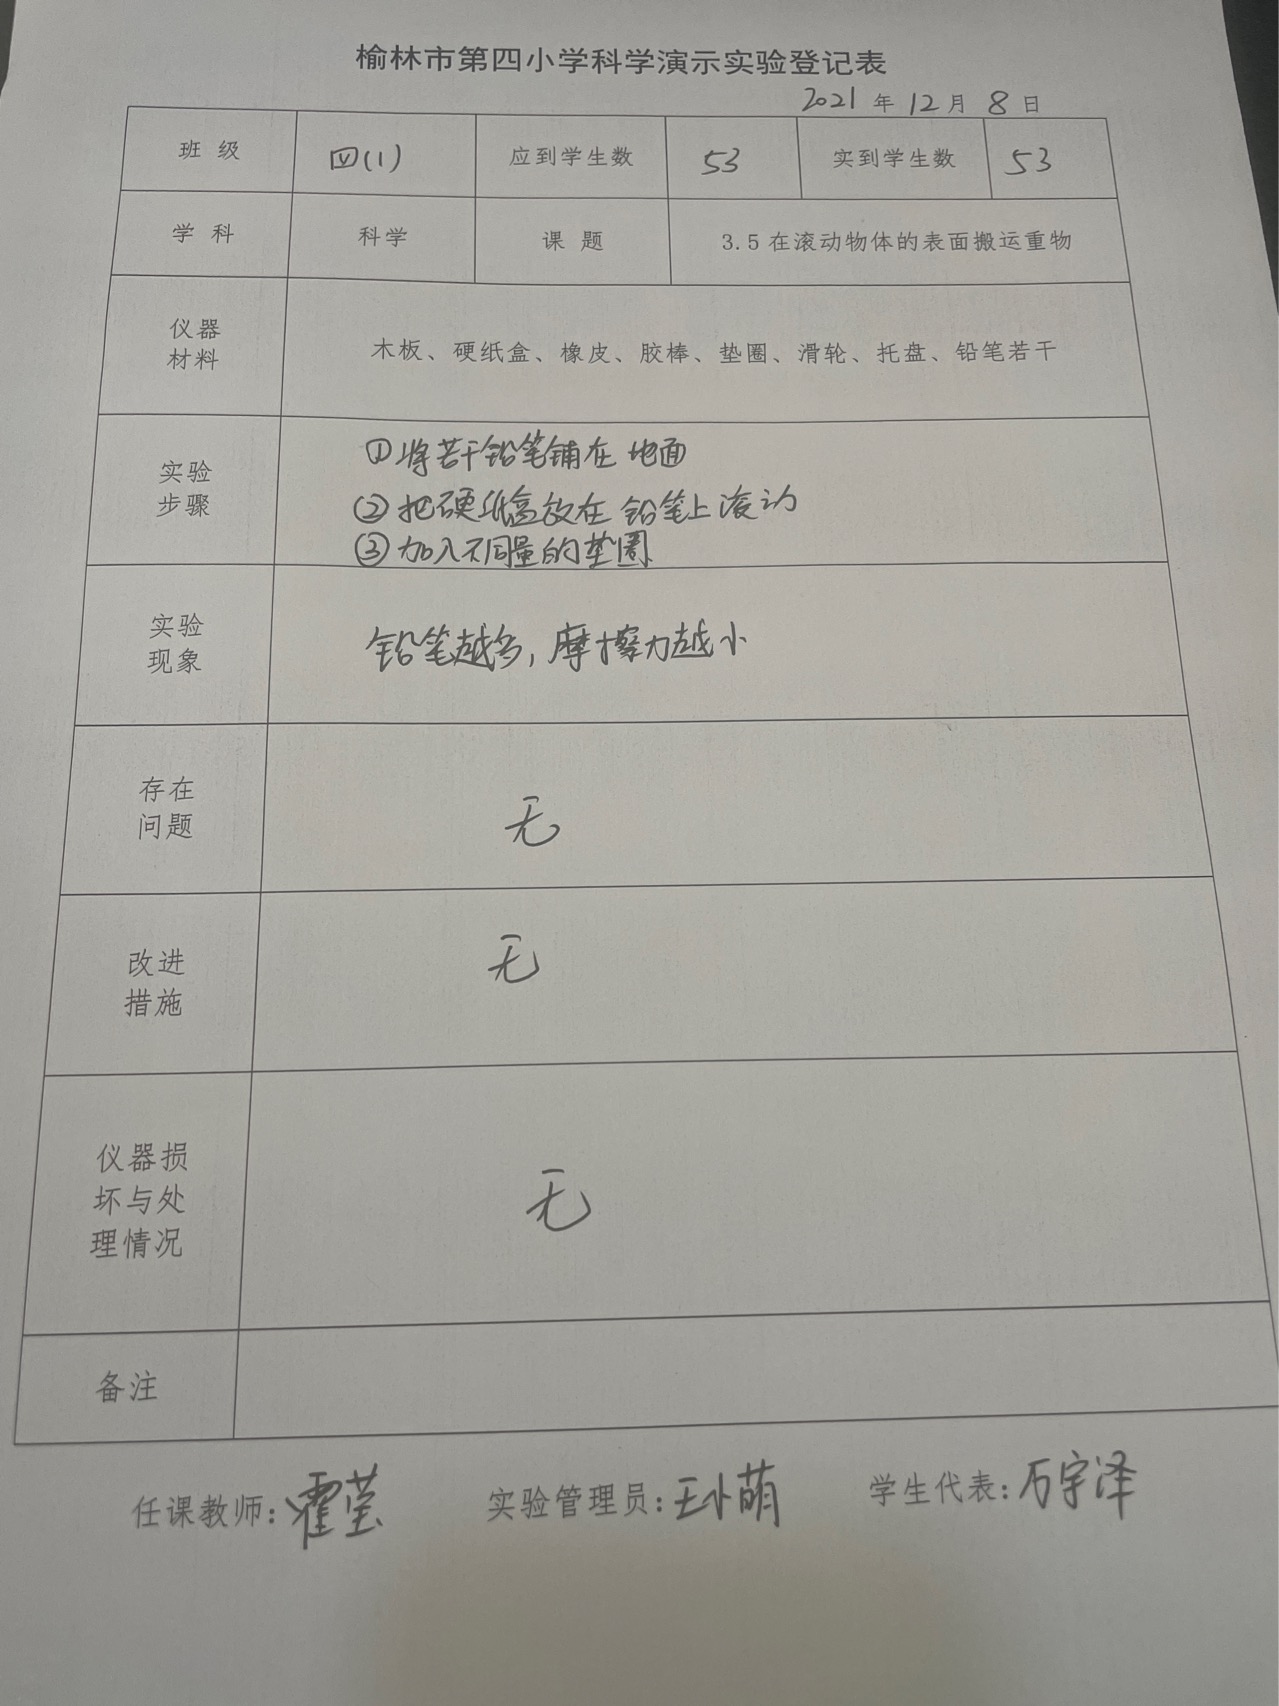 榆林市第四小学科学演示实验登记表
2021 年 12 月 8 日
班 级 四(1) 应到学生数 53 实到学生数 53
学 科 科学 课 题 3.5在滚动物体的表面搬运重物
仪器
材料
木板、硬纸盒、橡皮、胶棒、垫圈、滑轮、托盘、铅笔若干
实验
步骤
①将若干铅笔铺在地面
②把硬纸盒放在铅笔上滚动
③加入不同量的垫圈
实验
现象
铅笔越多,摩擦力越小
存在
问题
无
改进
措施
无
仪器损
坏与处
理情况
无
备注
任课教师:霍莹 实验管理员:王小萌 学生代表:万宇泽